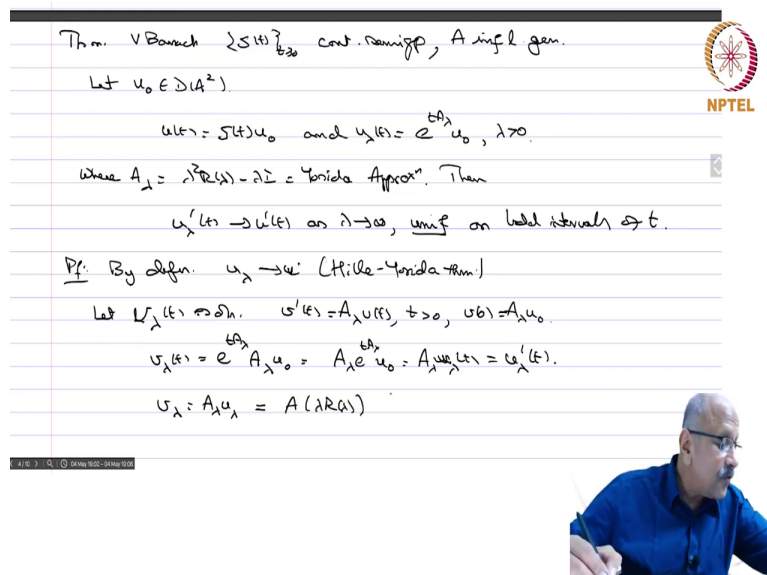 Thm. V Banach {S(t)}_{t≥0} cont. semigp, A infl gen.
NPTEL
Let u₀ ∈ D(A²).
u(t) = S(t)u₀ and u_λ(t) = e^{tA_λ}u₀, λ>0.
Where A_λ = λ²R(λ) - λI = Yosida Approxⁿ. Then
u_λ'(t) → u'(t) as λ→∞, unif on bdd intervals of t.
Pf: By defn. u_λ → u (Hille-Yosida thm.)
Let v_λ(t) soln. v'(t) = A_λ v(t), t>0, v(0) = A_λ u₀.
v_λ(t) = e^{tA_λ} A_λ u₀ = A_λ e^{tA_λ} u₀ = A_λ u_λ(t) = u_λ'(t).
v_λ = A_λ u_λ = A(λR(λ))
4/10 04 May 19:02 - 04 May 19:06